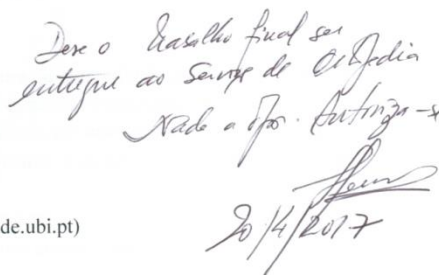 Deve o Trabalho final ser
entregue ao Serviço de Ortopedia
Nada a opor. Autoriza-se
20/4/2017
de.ubi.pt)